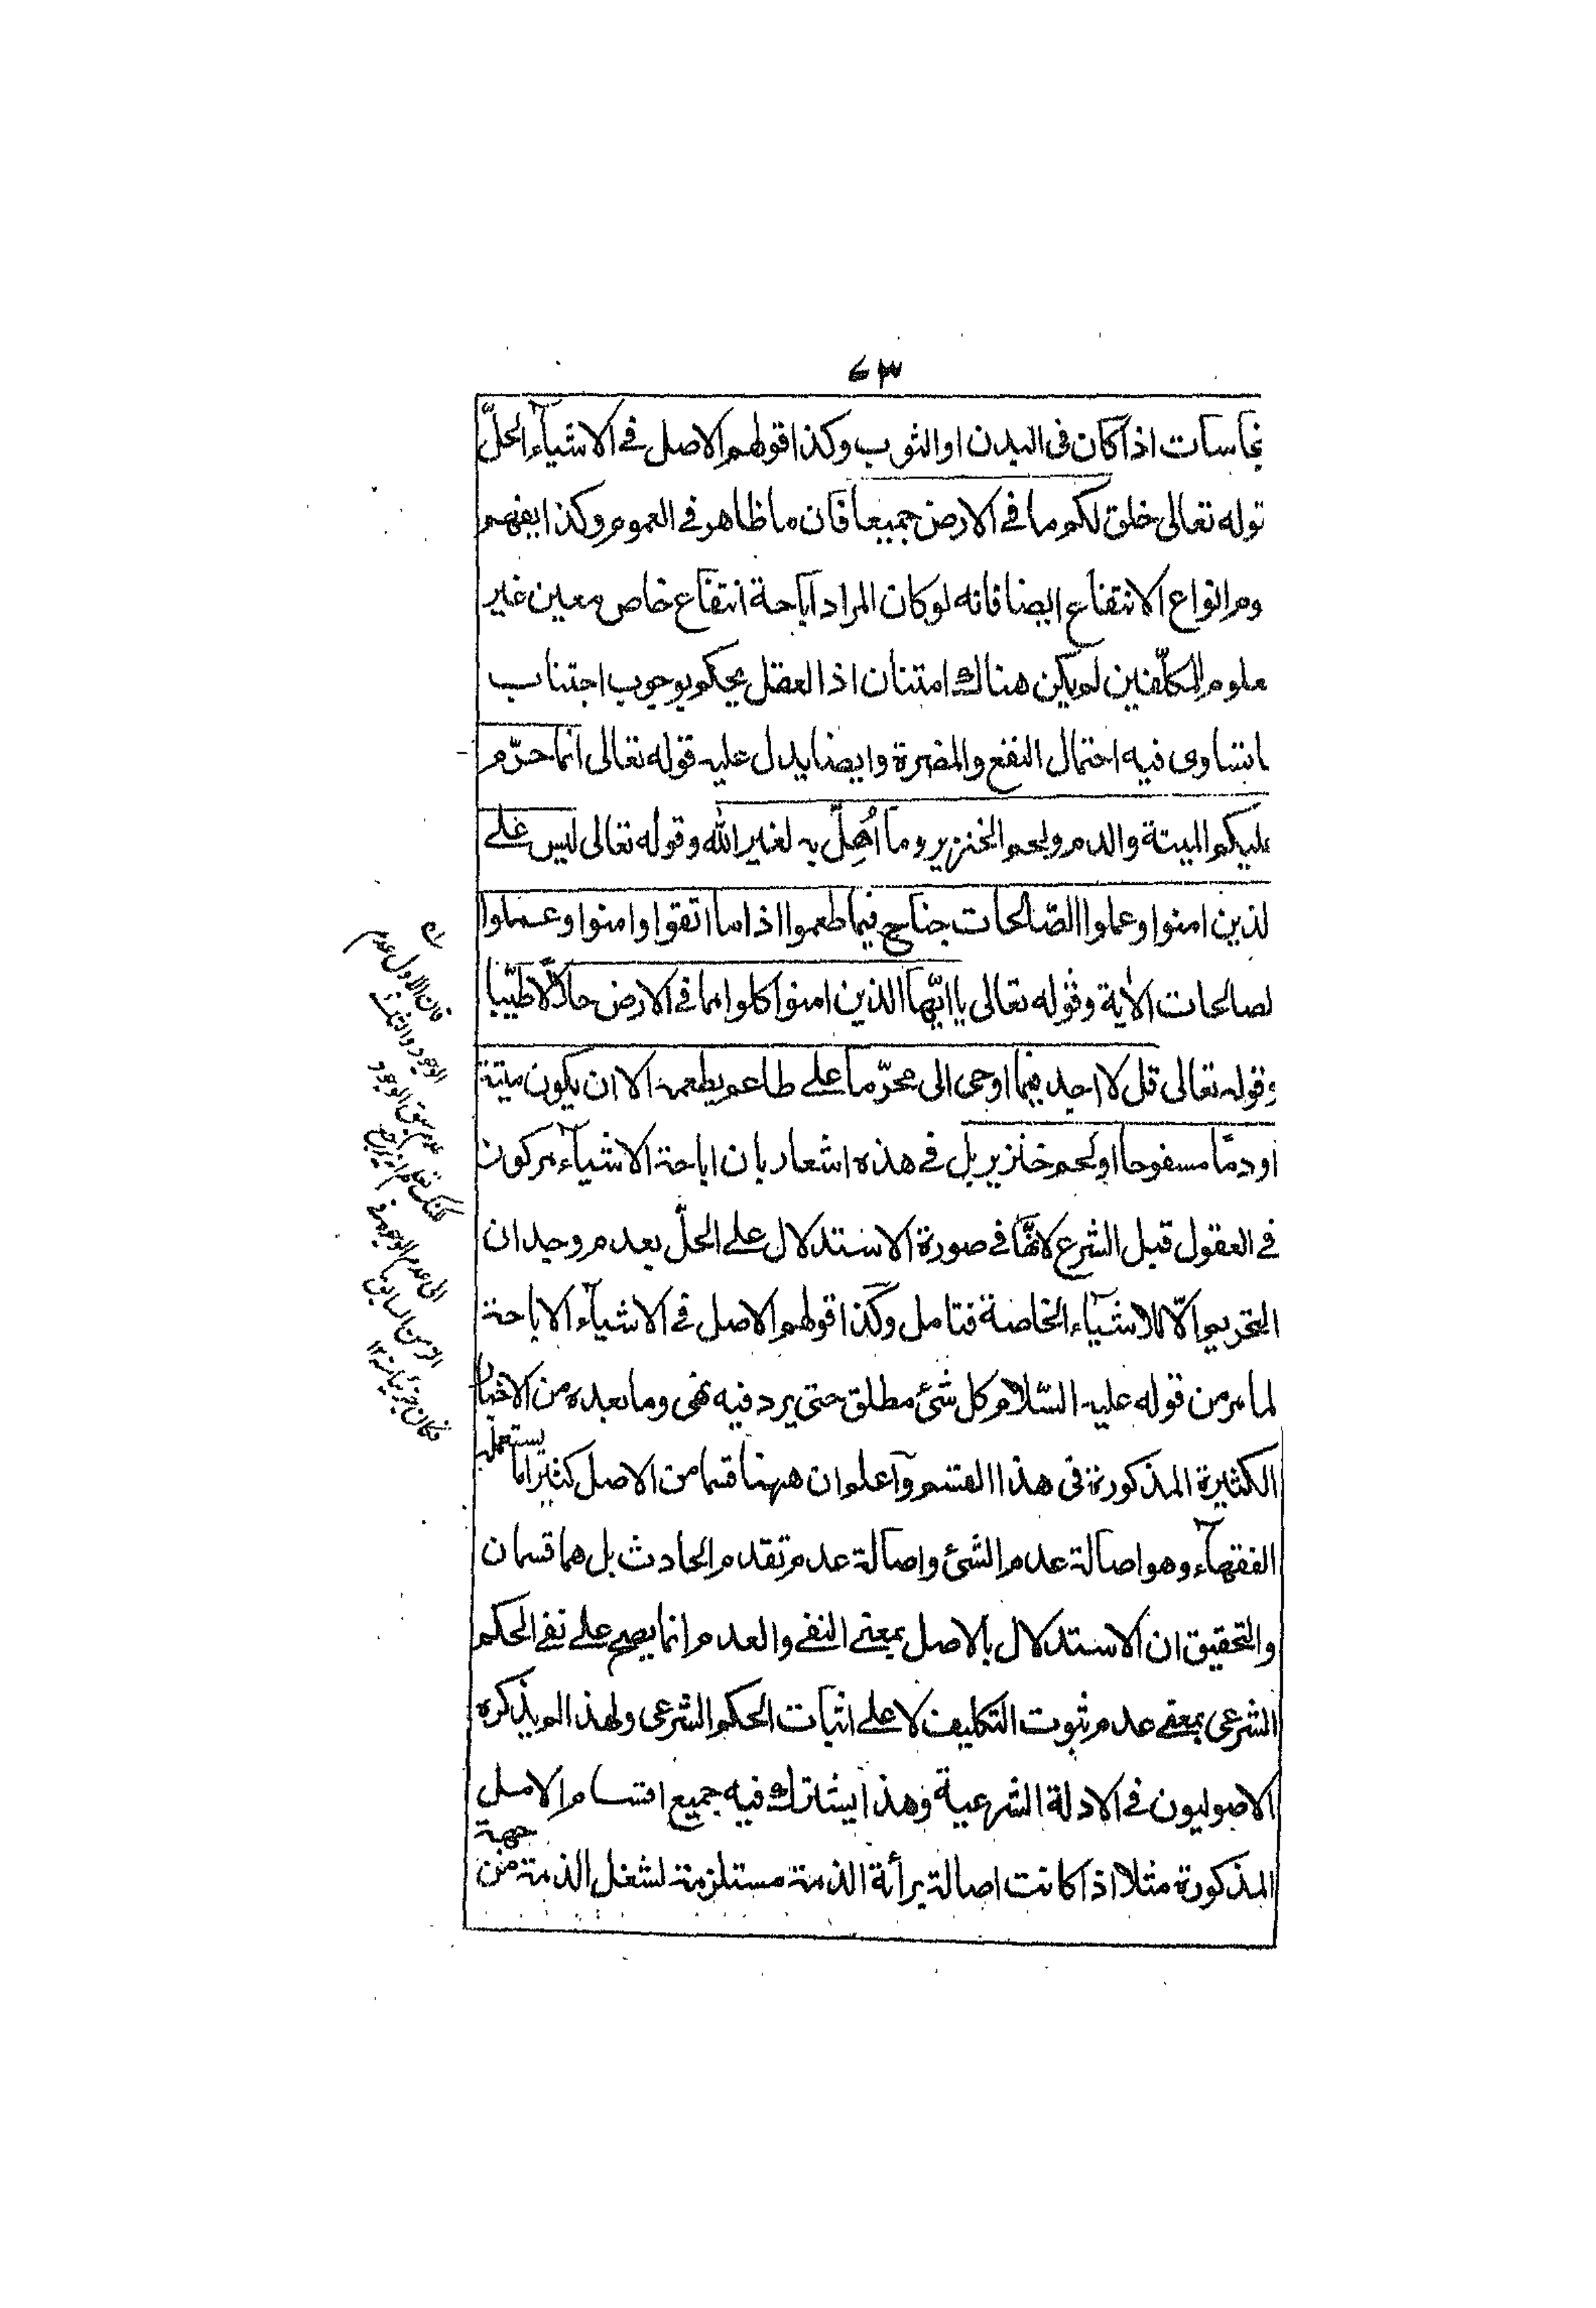 ٧٣
نجاسات اذا كان فى البدن او الثوب وكذا قولهم الاصل فى الاشيآء الحلّ
قوله تعالى خلق لكم ما فى الارض جميعا فان ما ظاهر فى العموم وكذا يفهم
وم انواع الانتفاع ايضا فانه لو كان المراد اباحة انتفاع خاص معين غير
علوم للمكلّفين لم يكن هناك امتنان اذ العقل يحكم بوجوب اجتناب
ا تساوى فيه احتمال النفع والمضرة وايضا يدل عليه قوله تعالى انما حرّم
عليكم الميتة والدم ولحم الخنزير وما اُهِلّ به لغير الله وقوله تعالى ليس على
لذين امنوا وعملوا الصّالحات جناح فيما طعموا اذا ما اتقوا وامنوا وعملوا
لصالحات الآية وقوله تعالى يا ايّها الذين امنوا كلوا مما فى الارض حلالًا طيّبا
وقوله تعالى قل لا اجد فيما اوحى الى محرّما على طاعم يطعمه الا ان يكون ميتة
او دمًا مسفوحا او لحم خنزير بل فى هذه اشعار بان اباحة الاشيآء مركون
فى العقول قبل الشرع لانّها فى صورة الاستدلال على الحلّ بعدم وجدان
التحريم الّا للاشيآء الخاصة فتامل وكذا قولهم الاصل فى الاشيآء الاباحة
لما مر من قوله عليه السّلام كل شئ مطلق حتى يرد فيه نهى وما بعده من الاخبار
الكثيرة المذكورة فى هذا القسم وآعلم ان ههنا قسما من الاصل كثيرا ما يستعمله
الفقهآء وهو اصالة عدم الشئ واصالة عدم تقدم الحادث بل هما قسمان
والتحقيق ان الاستدلال بالاصل بمعنى النفى والعدم انما يصح على نفى الحكم
الشرعى بمعنى عدم ثبوت التكليف لا على اثبات الحكم الشرعى ولهذا لم يذكره
الاصوليون فى الادلة الشرعية وهذا يشترك فيه جميع اقسام الاصل
المذكورة مثلا اذا كانت اصالة برأة الذمة مستلزمة لشغل الذمة من جهة
فان الاول عدم